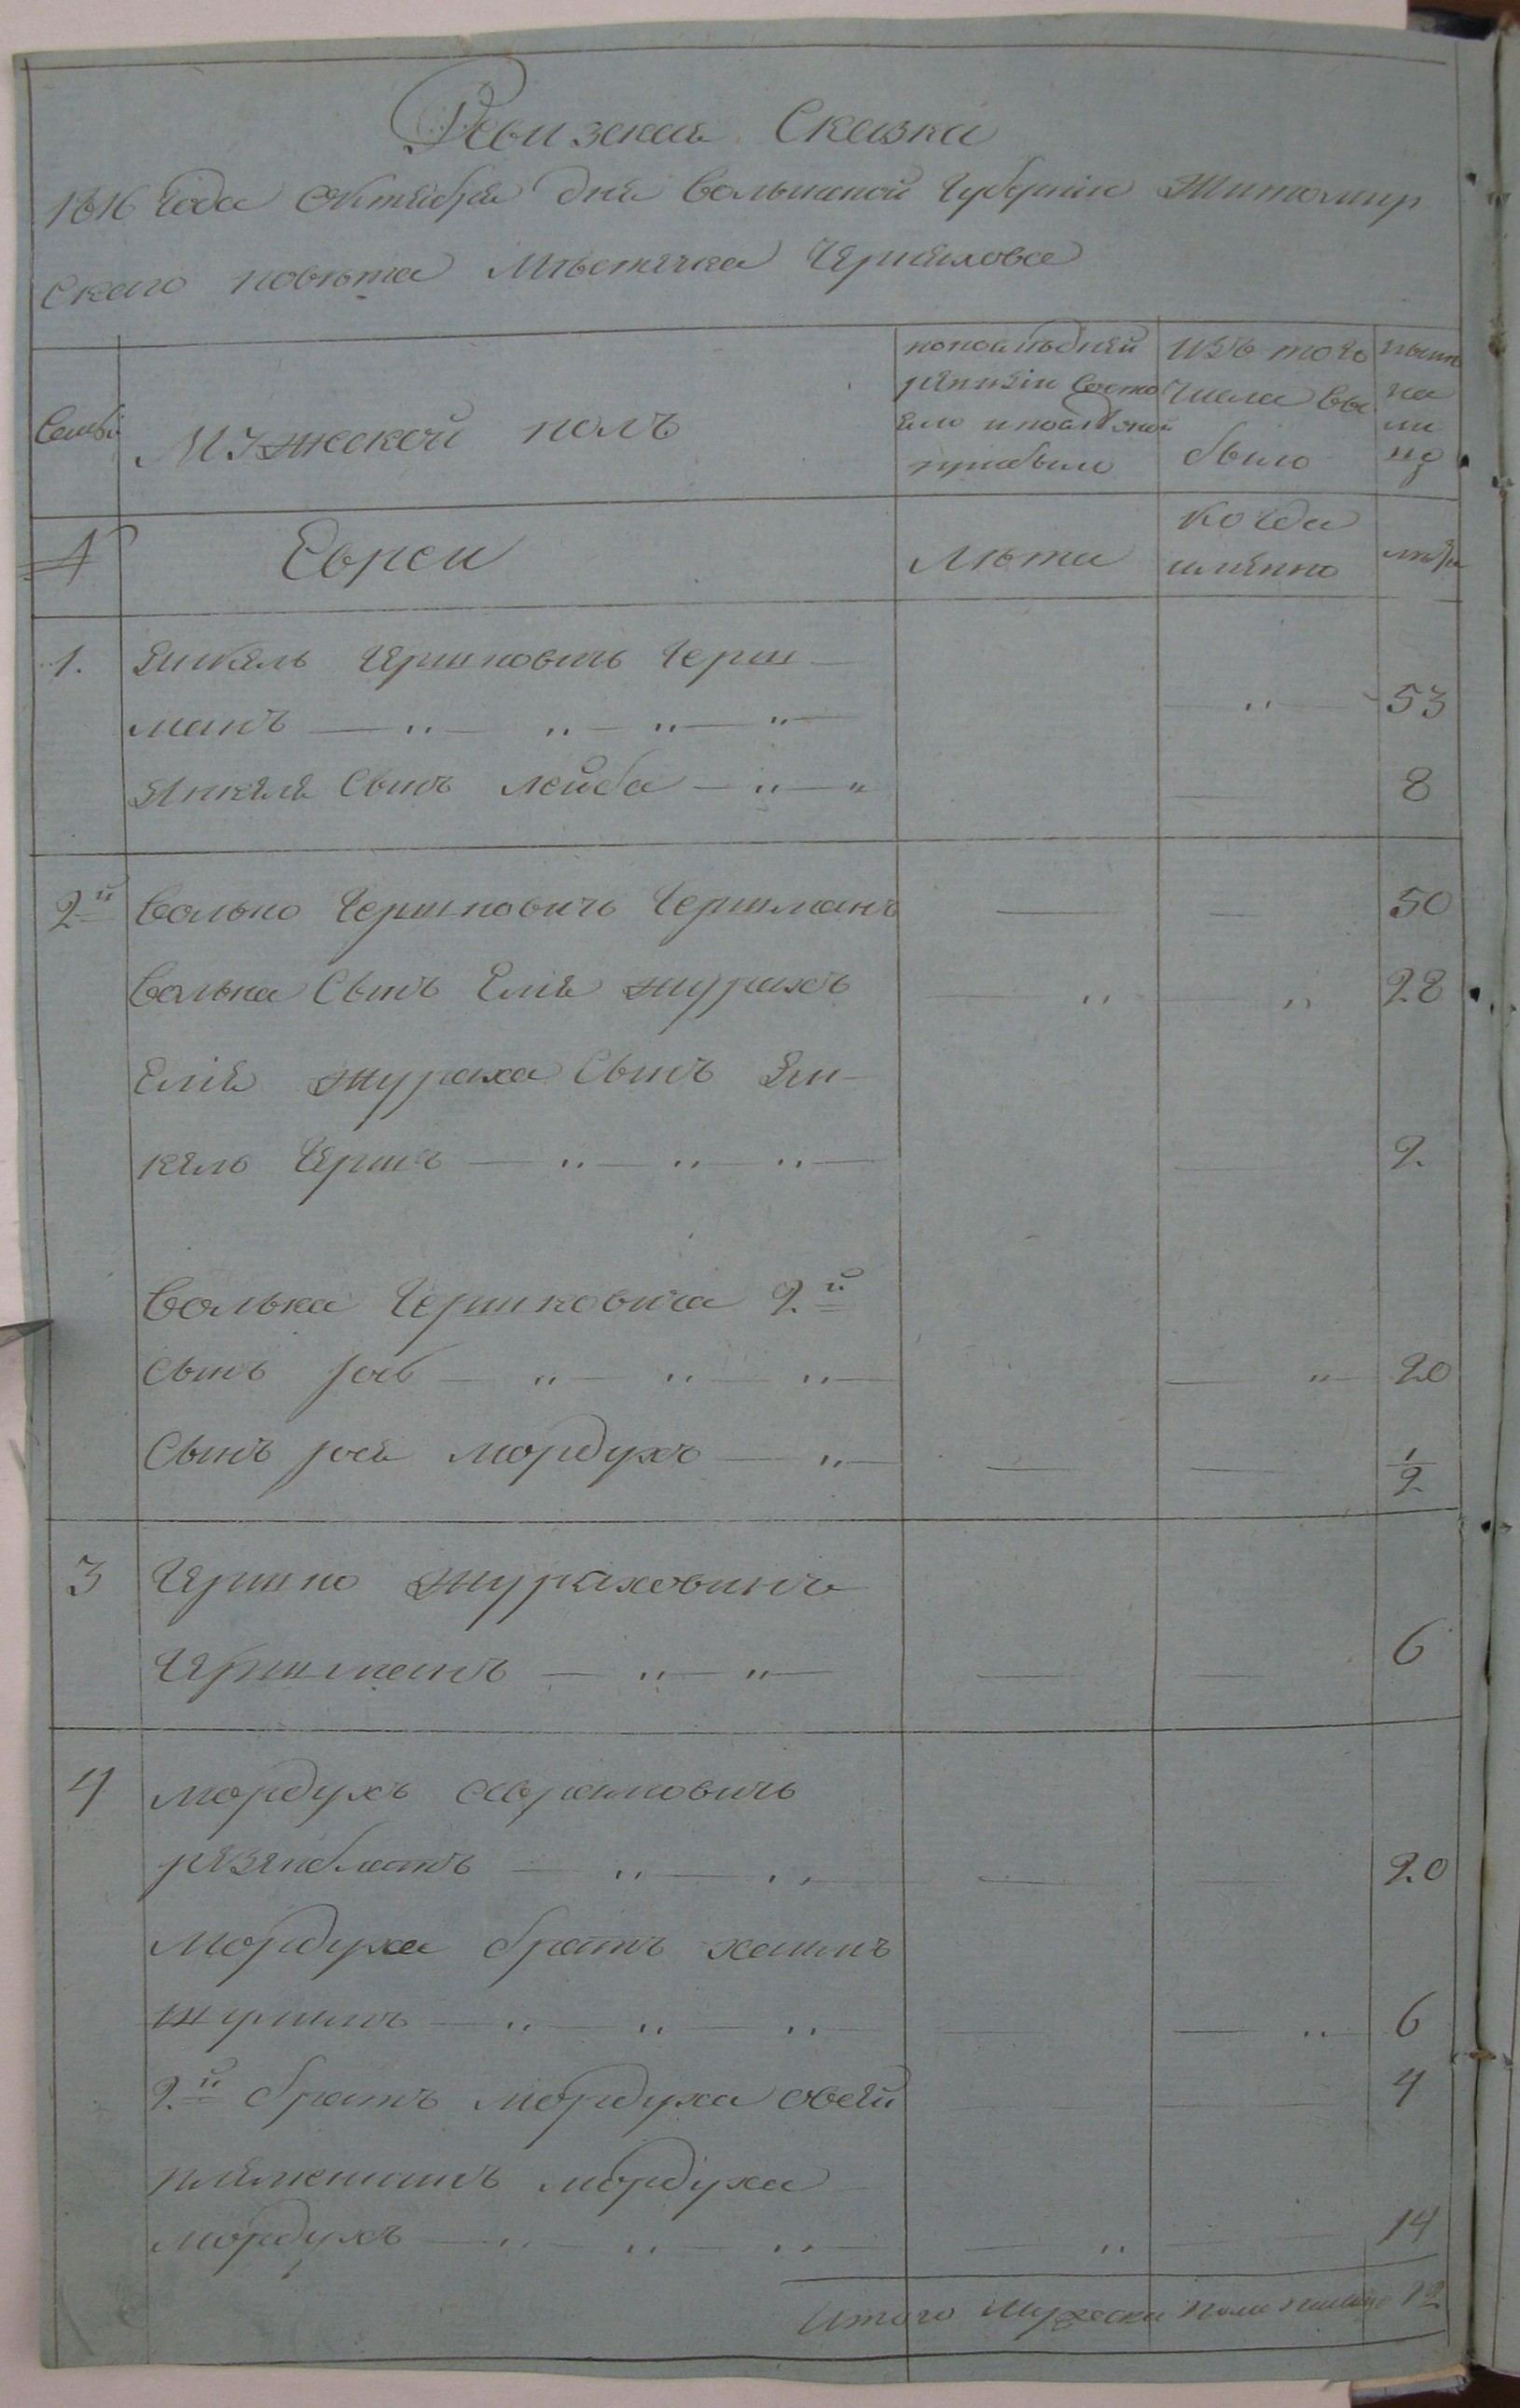 Ревизская Сказка
1816 Года Октября дня Волынской Губернии Житомир
ского повѣта Мѣстечка Черняхова
Семьи
Мужской полъ
попослѣдней ревизiи состояло и послѣ оной прибыло
Изъ того числа выбыло
нынѣ на ли цо
Евреи
Лѣта
когда имянно
лѣта
1. Янкель Гершковичь Герш
манъ — „ — „ — „ — „ — 53
Янкеля Сынъ Лейба — „ — „ 8
2й Волько Гершковичь Гершманъ 50
Волька Сынъ Еля Шурахъ 28
Еля Шураха Сынъ Ян-
кель Гершъ — „ — „ — „ — 2
Волька Гершковича 2й
Сынъ Iось — „ — „ — „ — 20
Сынъ Iося Мордухъ — „ — 1/2
3 Гершко Шураховичъ
Гершманъ — „ — „ — 6
4 Мордухъ Аврамовичь
Резенблатъ — „ — „ 20
Мордуха братъ Хаимъ
— „ — „ — „ — „ 6
2й братъ Мордуха Овсѣй 4
племенникъ Мордуха
Мордухъ — „ — „ — „ — „ 14
Итого мужеска пола 12